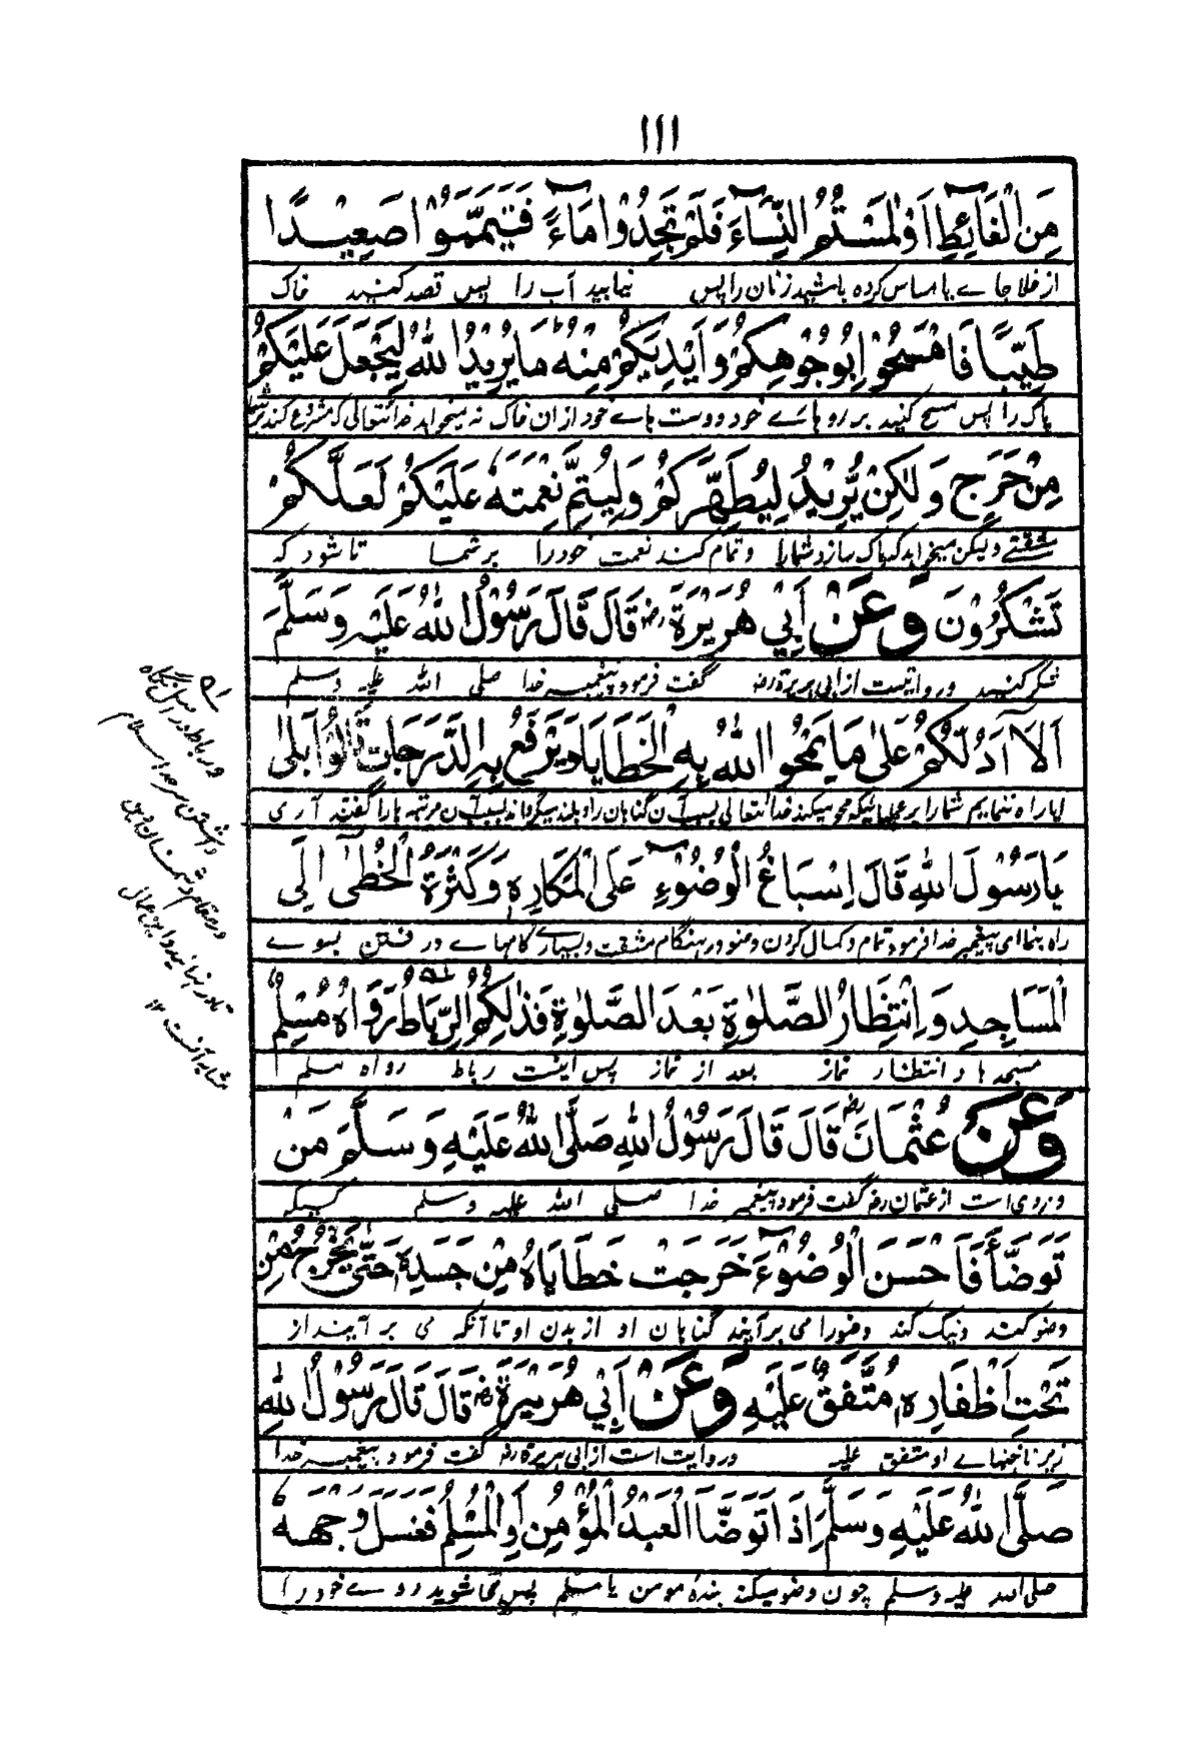 ١١١
مِنَ الْغَائِطِ اَوْ لٰمَسْتُمُ النِّسَآءَ فَلَمْ تَجِدُوْا مَآءً فَتَيَمَّمُوْا صَعِيْدًا
از خلا جاے یا مساس کرده باشید زنان را پس نیابید آب را پس قصد کنید خاک
طَيِّبًا فَامْسَحُوْا بِوُجُوْهِكُمْ وَاَيْدِيَكُمْ مِنْهُ مَا يُرِيْدُ اللهُ لِيَجْعَلَ عَلَيْكُمْ
پاک را پس مسح کنید بر روہاے خود و دست ہاے خود از ان خاک نہ میخواہد خدائتعالی کہ مشروع کند بر شما
مِنْ حَرَجٍ وَلٰكِنْ يُّرِيْدُ لِيُطَهِّرَكُمْ وَلِيُتِمَّ نِعْمَتَهٗ عَلَيْكُمْ لَعَلَّكُمْ
مشقتے و لیکن میخواہد کہ پاک سازد شمارا و تمام کند نعمت خود را بر شما تا شود کہ
تَشْكُرُوْنَ وَعَنْ اَبِيْ هُرَيْرَةَ رض قَالَ قَالَ رَسُوْلُ اللهُ عَلَيْهِ وَسَلَّمَ
شکر کنید و روایتست از ابی ہریرة رضہ گفت فرمود پیغمبر خدا صلی اللہ علیہ وسلم
اَلَا اَدُلُّكُمْ عَلٰى مَا يَمْحُو اللهُ بِهِ الْخَطَايَا وَيَرْفَعُ بِهِ الدَّرَجَاتِ قَالُوْا بَلٰى
ایا راه ننمایم شمارا بر عملہائیکہ محو میکند خدائتعالی بسبب آن گناہان را و بلند میگرداند بسبب آن مرتبہ ہا را گفتند آری
يَا رَسُوْلَ اللهِ قَالَ اِسْبَاغُ الْوُضُوْءِ عَلَى الْمَكَارِهِ وَكَثْرَةُ الْخُطٰى اِلَى
راه بنمای پیغمبر خدا فرمود تمام و کمال کردن وضو در ہنگام مشقت و بسیارے گامہاے در رفتن بسوے
الْمَسَاجِدِ وَاِنْتِظَارُ الصَّلٰوةِ بَعْدَ الصَّلٰوةِ فَذٰلِكُمُ الرِّبَاطُ رَوَاهُ مُسْلِمٌ
مسجدہا و انتظار نماز بعد از نماز پس اینست رباط رواه مسلم
وَعَنْ عُثْمَانَ رض قَالَ قَالَ رَسُوْلُ اللهِ صَلَّى اللهُ عَلَيْهِ وَسَلَّمَ مَنْ
و مروی است از عثمان رضہ گفت فرمود پیغمبر خدا صلی اللہ علیہ وسلم کسیکہ
تَوَضَّأَ فَاَحْسَنَ الْوُضُوْءَ خَرَجَتْ خَطَايَاهُ مِنْ جَسَدِهٖ حَتّٰى يَخْرُجَ مِنْ
وضو کند و نیک کند وضو را می برآیند گناہان او از بدن او تا آنکہ می برآیند از
تَحْتِ اَظْفَارِهِ مُتَّفَقٌ عَلَيْهِ وَعَنْ اَبِيْ هُرَيْرَةَ رض قَالَ قَالَ رَسُوْلُ اللهِ
زیر ناخنہاے او متفق علیہ و روایت است از ابی ہریرة رضہ گفت فرمود پیغمبر خدا
صَلَّى اللهُ عَلَيْهِ وَسَلَّمَ اِذَا تَوَضَّأَ الْعَبْدُ الْمُؤْمِنُ اَوِ الْمُسْلِمُ فَغَسَلَ وَجْهَهٗ
صلی اللہ علیہ وسلم چون وضو میکند بندۂ مومن یا مسلم پس می شوید روے خود را
و رباط در اصل نگاه
داشتن سرحد اسلام